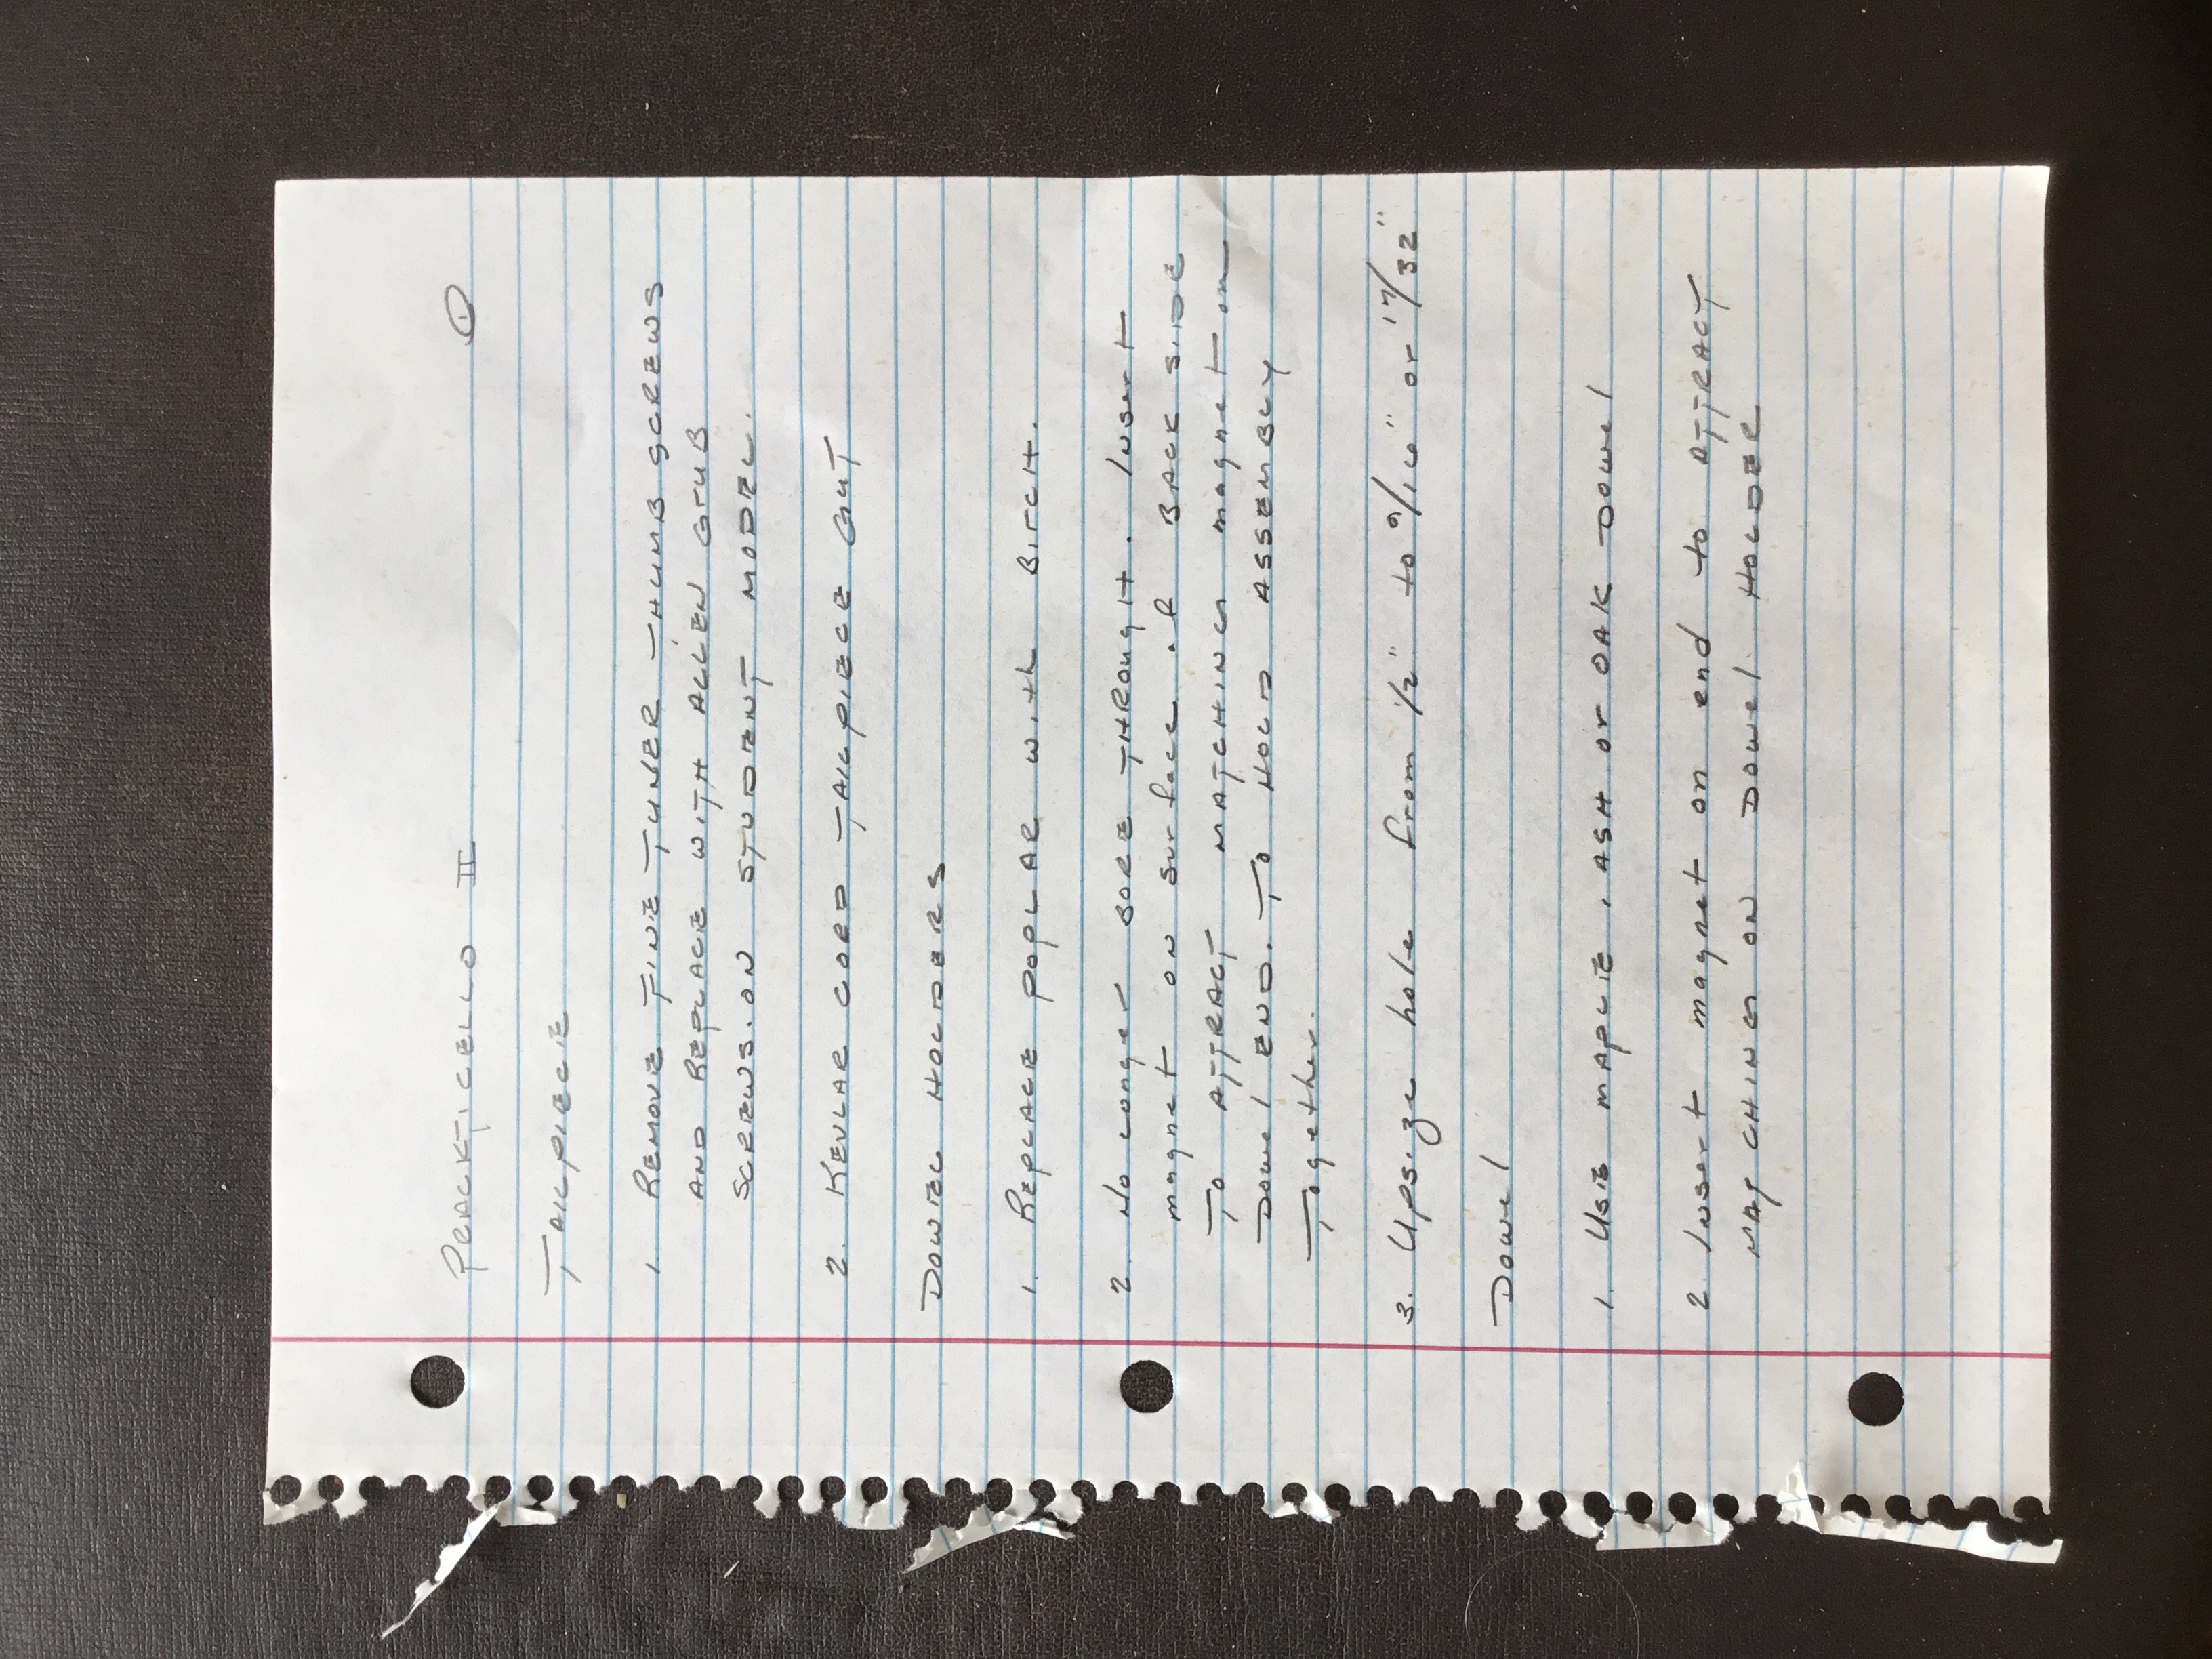 PRACKTICELLO II ①
TAILPIECE
1. REMOVE FINE TUNER THUMB SCREWS
AND REPLACE WITH ALLEN GRUB
SCREWS. ON STUDENT MODEL.
2. KEVLAR CORD TAILPIECE GUT
DOWEL HOLDERS
1. REPLACE POPLAR with Birch.
2. No longer BORE THROUGH. Insert
magnet ON surface of BACK SIDE
TO ATTRACT MATCHING magnet on
Dowel END. To HOLD ASSEMBLY
Together.
3. Upsize hole from 1/2" to 9/16" or 17/32"
Dowel
1. USE MAPLE, ASH or OAK Dowel
2. Insert magnet on end to ATTRACT
MATCHING ON Dowel HOLDER